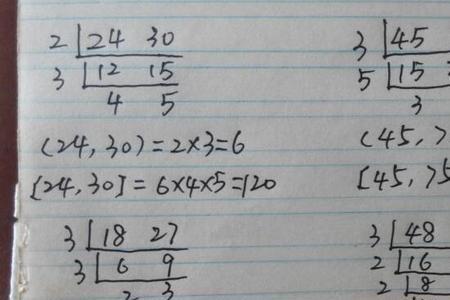 2 | 24 30
3 | 12 15
4 5
(24, 30) = 2×3=6
[24, 30] = 6×4×5=120
3 | 18 27
3 | 6 9
2 3
3 | 45
5 | 15
3
(45, 7
[45, 75
3 | 48
2 | 16
2 | 8